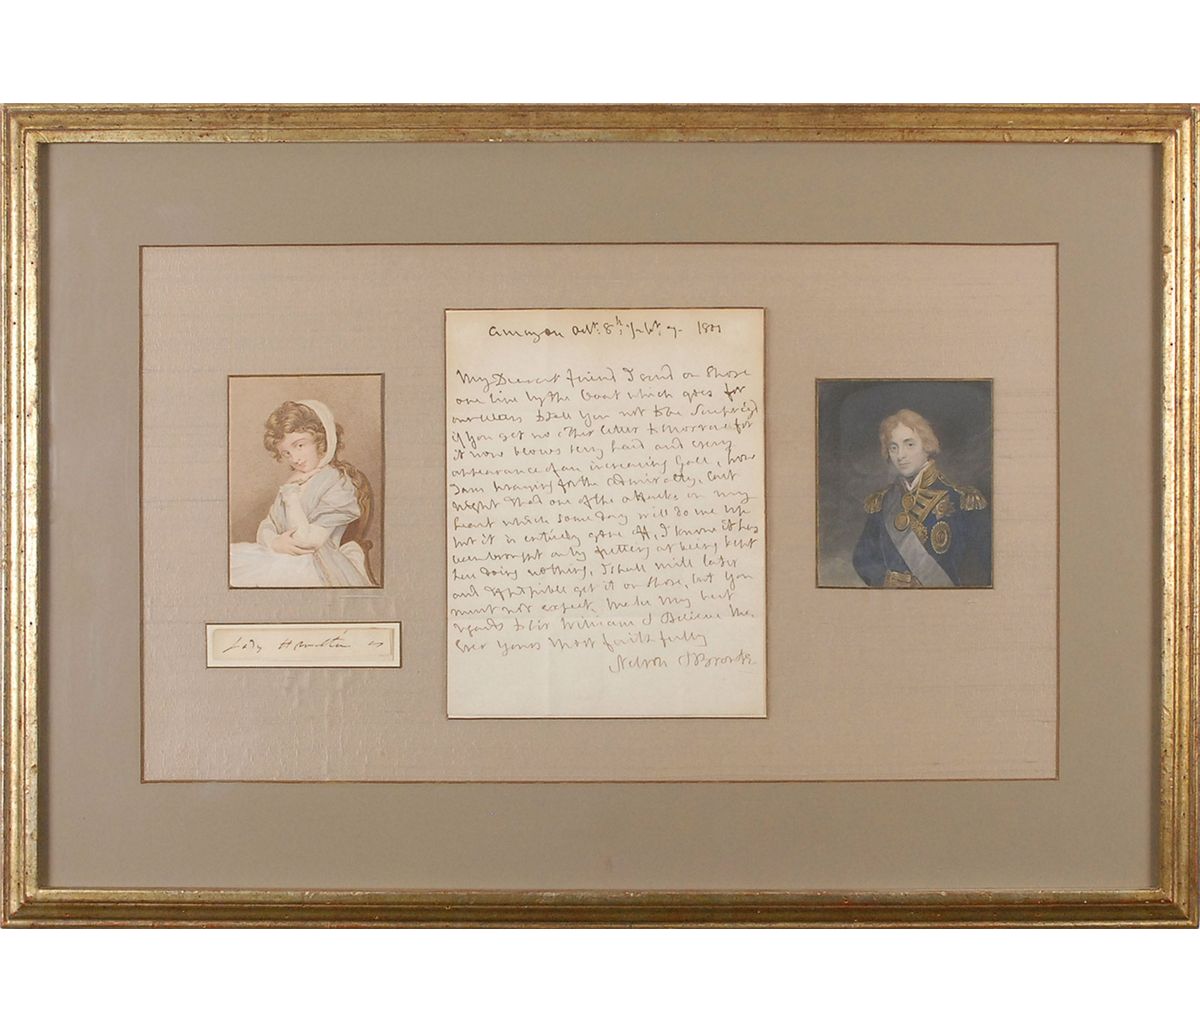 Amazon Octr: 8th: 1801
My Dearest friend I send on shore
one line by the boat which goes for
our letters to tell you not to be surprized
if you get no other letter tomorrow for
it now blows very hard and every
appearance of an increasing Gale, how
I am longing for the Admiralty, last
night I had one of the attacks on my
heart which some day will do me up
but it is entirely gone off, I know it has
been brought on by fretting at being kept
here doing nothing, I shall write later
and if possible get it on shore, but you
must not expect. Make my best
regards to Sir William & Believe Me
Ever yours most faithfully
Nelson & Bronte
Lady Hamilton